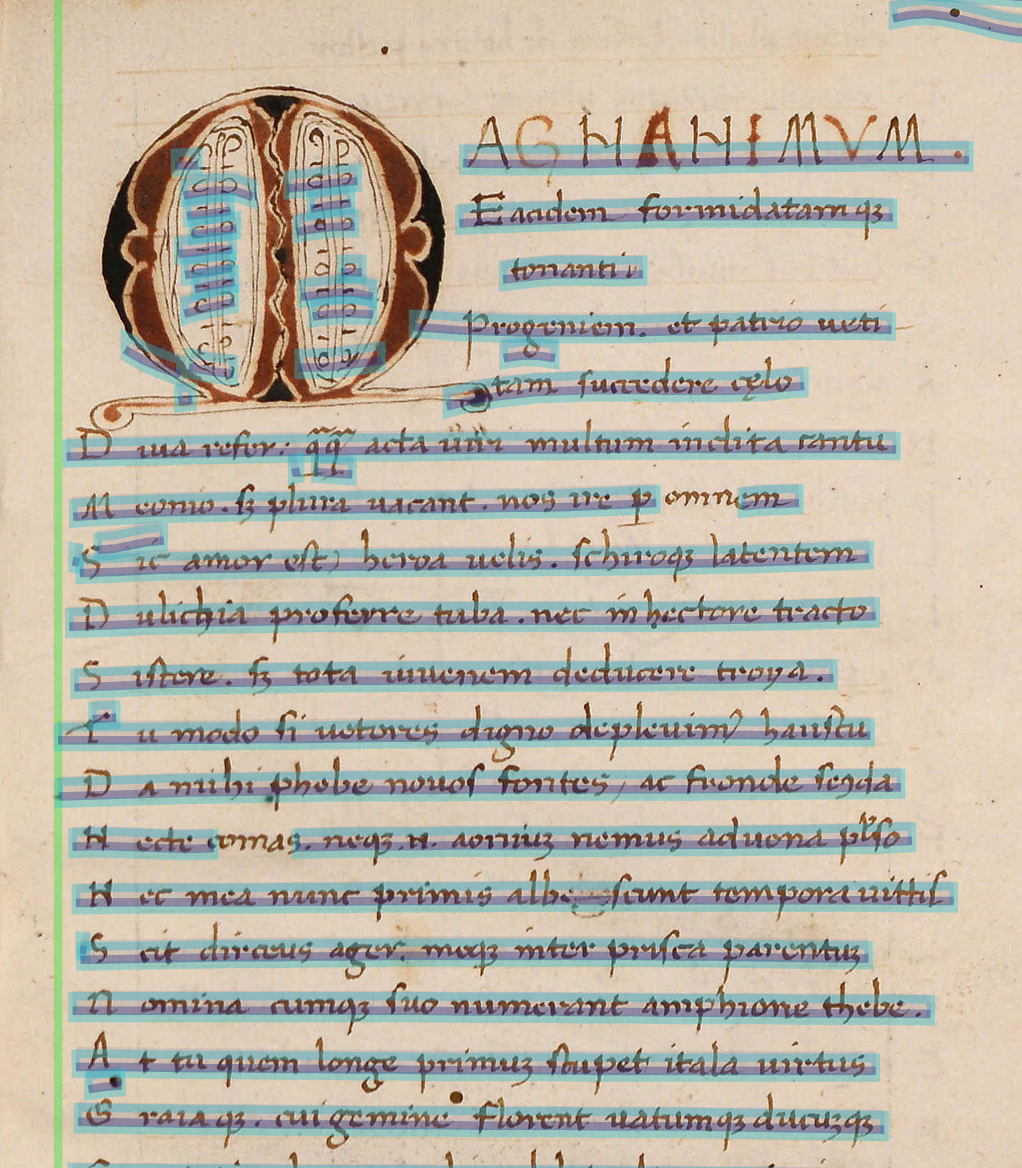 MAGNANIMVM.
Eacidem formidatamqꝫ
tonanti
Progeniem. et patrio ueti
tam succedere cęlo
Diua refer. q̄q̄ acta uiri multum inclita cantu
Meonio. sꝫ plura uacant. nos ire ꝑ omnem
Sic amor est, heroa uelis. schiroqꝫ latentem
Dulichia proferre tuba. nec in hectore tracto
Sistere. sꝫ tota iuuenem deducere troya.
Tu modo si ueteres digno depleuimꝰ haustu
Da mihi phebe nouos fontes, ac fronde secūda
Necte comas. neqꝫ .n. aoniuꝫ nemus aduena pulso
Nec mea nunc primis albescunt tempora uittis
Scit dirceus ager. meqꝫ inter prisca parentuꝫ
Nomina cumqꝫ suo numerant amphione thebe.
At tu quem longe primuꝫ stupet itala uirtus
Graiaqꝫ. cui gemine florent uatumqꝫ ducuꝫqꝫ